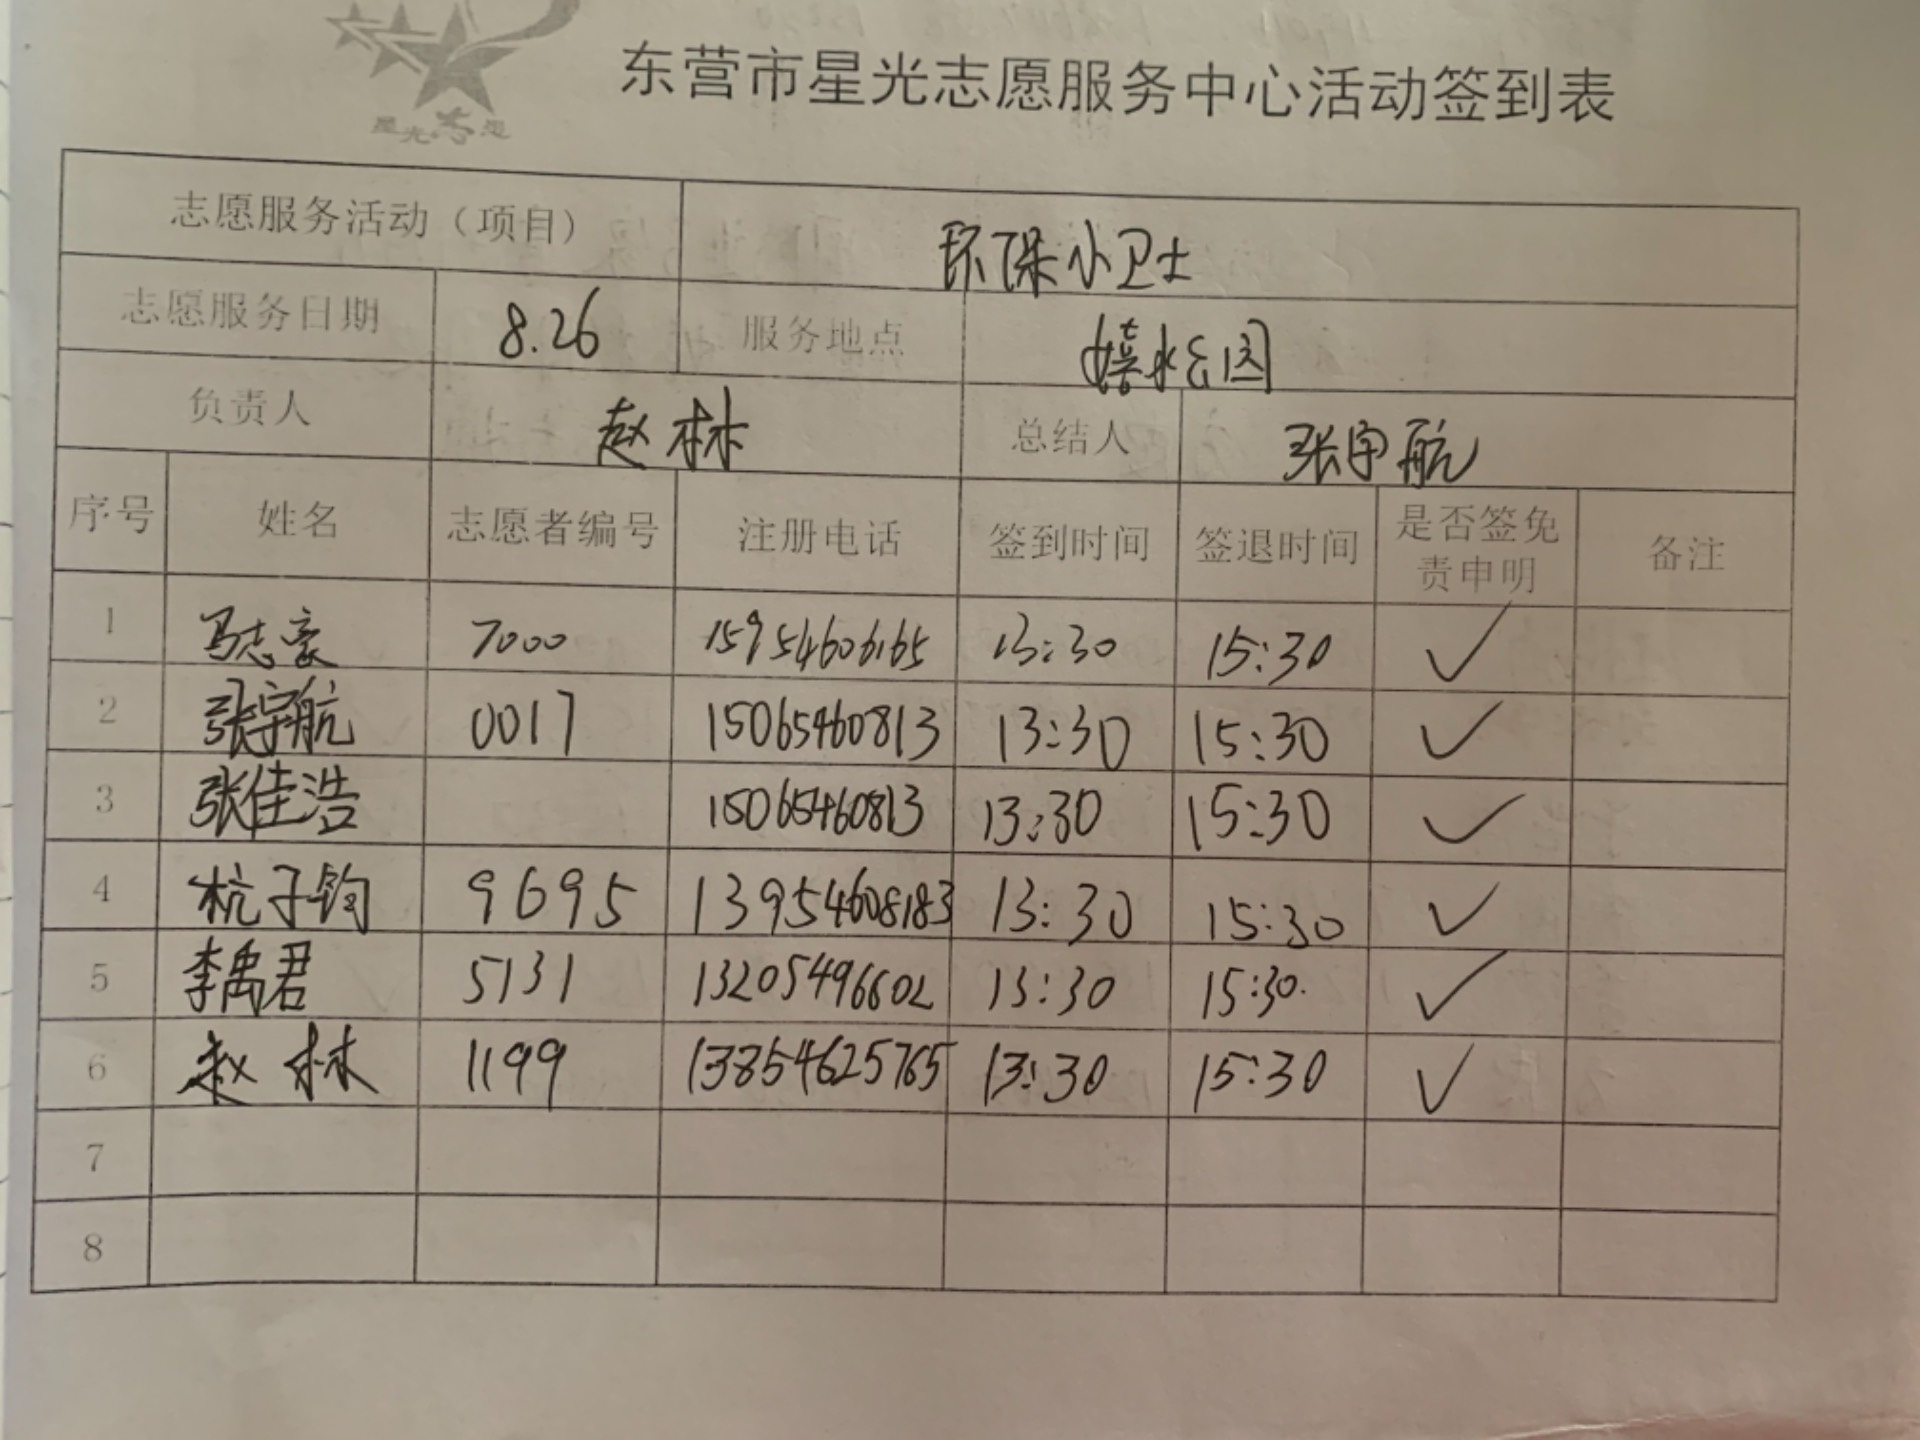 星光志愿
东营市星光志愿服务中心活动签到表
志愿服务活动（项目） 环保小卫士
志愿服务日期 8.26 服务地点 嬉水公园
负责人 赵林 总结人 张宇航
序号 姓名 志愿者编号 注册电话 签到时间 签退时间 是否签免责申明 备注
1 马志豪 7000 15954606165 13:30 15:30 ✓
2 张宇航 0017 15065460813 13:30 15:30 ✓
3 张佳浩 15065460813 13:30 15:30 ✓
4 杭子钧 9695 13954608183 13:30 15:30 ✓
5 李禹君 5131 13205496602 13:30 15:30 ✓
6 赵林 1199 13854625765 13:30 15:30 ✓
7
8